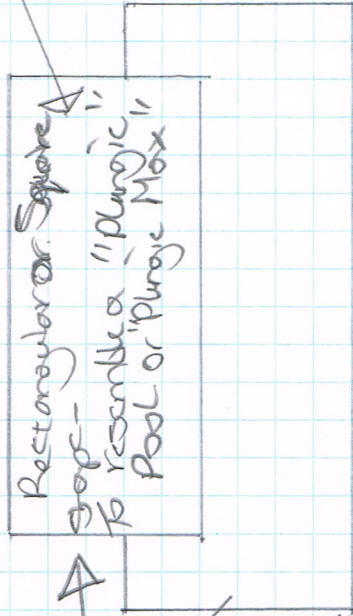 Rectangular or Square
gap -
To resemble a "plungie"
Pool or "Plungie Max"